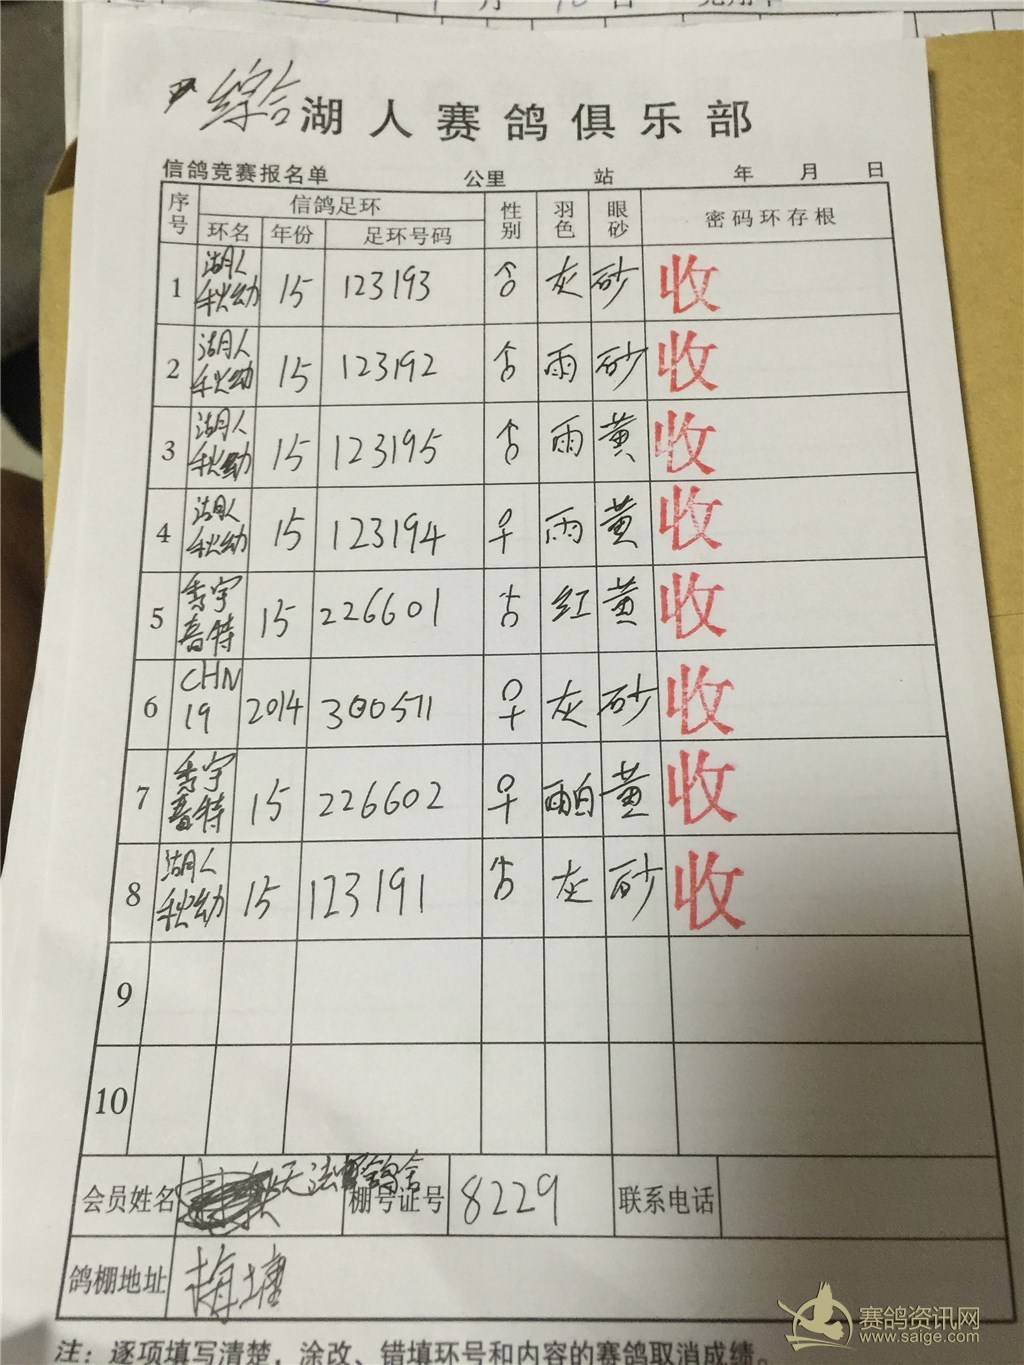 综合 湖人赛鸽俱乐部
信鸽竞赛报名单 公里 站 年 月 日
序号 信鸽足环 性别 羽色 眼砂 密码环存根
环名 年份 足环号码
1 湖人秋幼 15 123193 ♂ 灰 砂 收
2 湖人秋幼 15 123192 ♂ 雨 砂 收
3 湖人秋幼 15 123195 ♂ 雨 黄 收
4 湖人秋幼 15 123194 ♀ 雨 黄 收
5 秀宇音特 15 226601 ♂ 红 黄 收
6 CHN 19 2014 300571 ♀ 灰 砂 收
7 秀宇音特 15 226602 ♀ 雨白 黄 收
8 湖人秋幼 15 123191 ♂ 灰 砂 收
9
10
会员姓名 鸽舍 棚号证号 8229 联系电话
鸽棚地址 梅塘
注：逐项填写清楚，涂改、错填环号和内容的赛鸽取消成绩。
赛鸽资讯网
www.saige.com